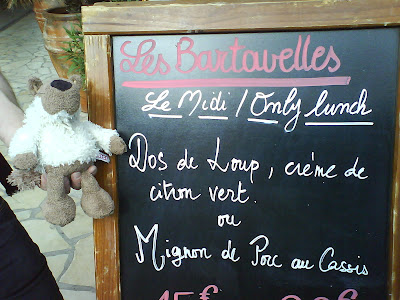 Les Bartavelles
Le Midi / Only lunch
Dos de Loup, crème de
citron vert.
ou
Mignon de Porc au Cassis
15€